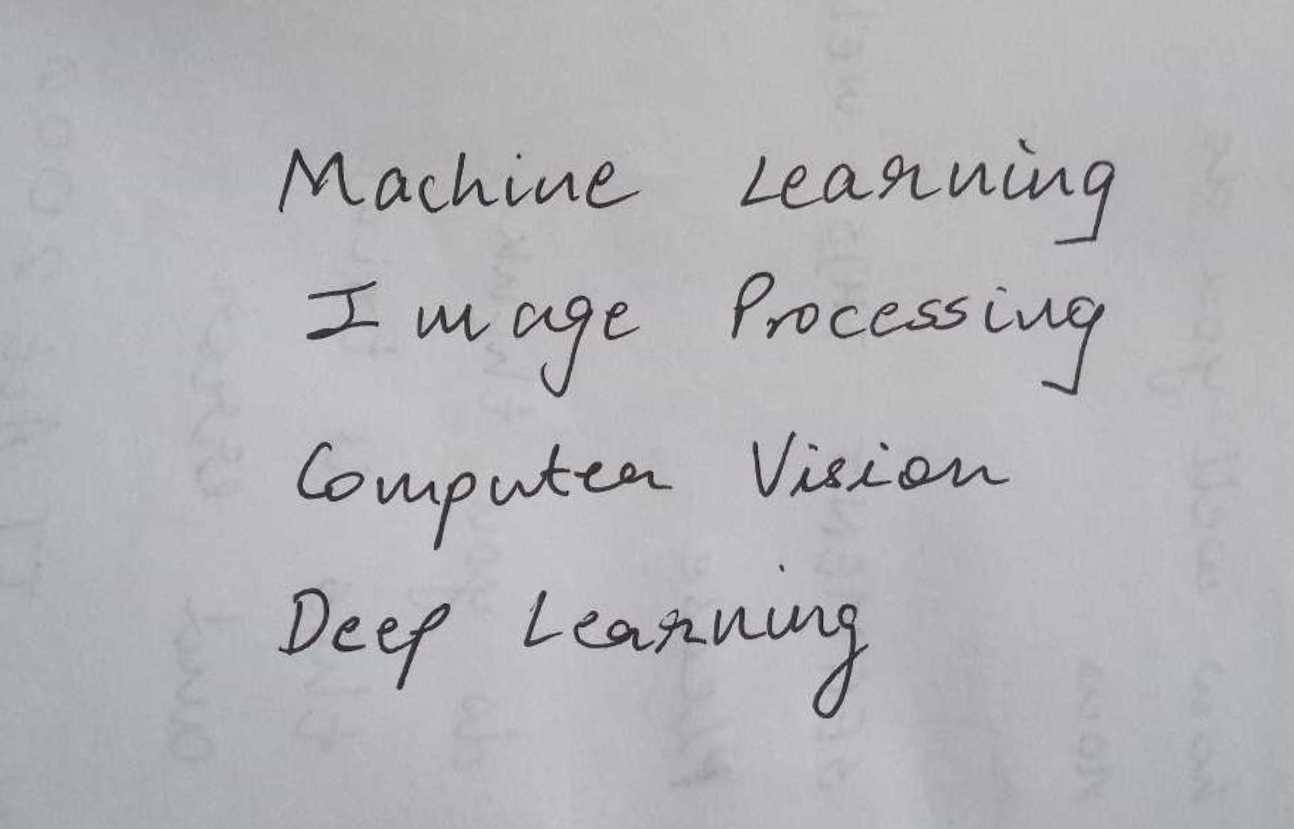 Machine Learning
Image Processing
Computer Vision
Deep Learning